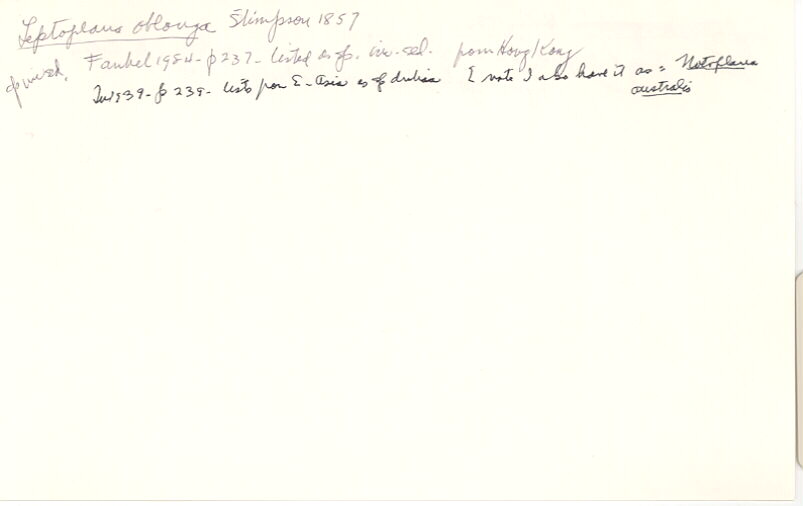 Leptoplana oblonga Stimpson 1857
sp. inc. sed. Faubel 1984 - p 237 - listed as sp. inc. sed. from Hong Kong
1939 - p 239 - lists from E. Asia as sp dubia I note I also have it as = Notoplana
australis